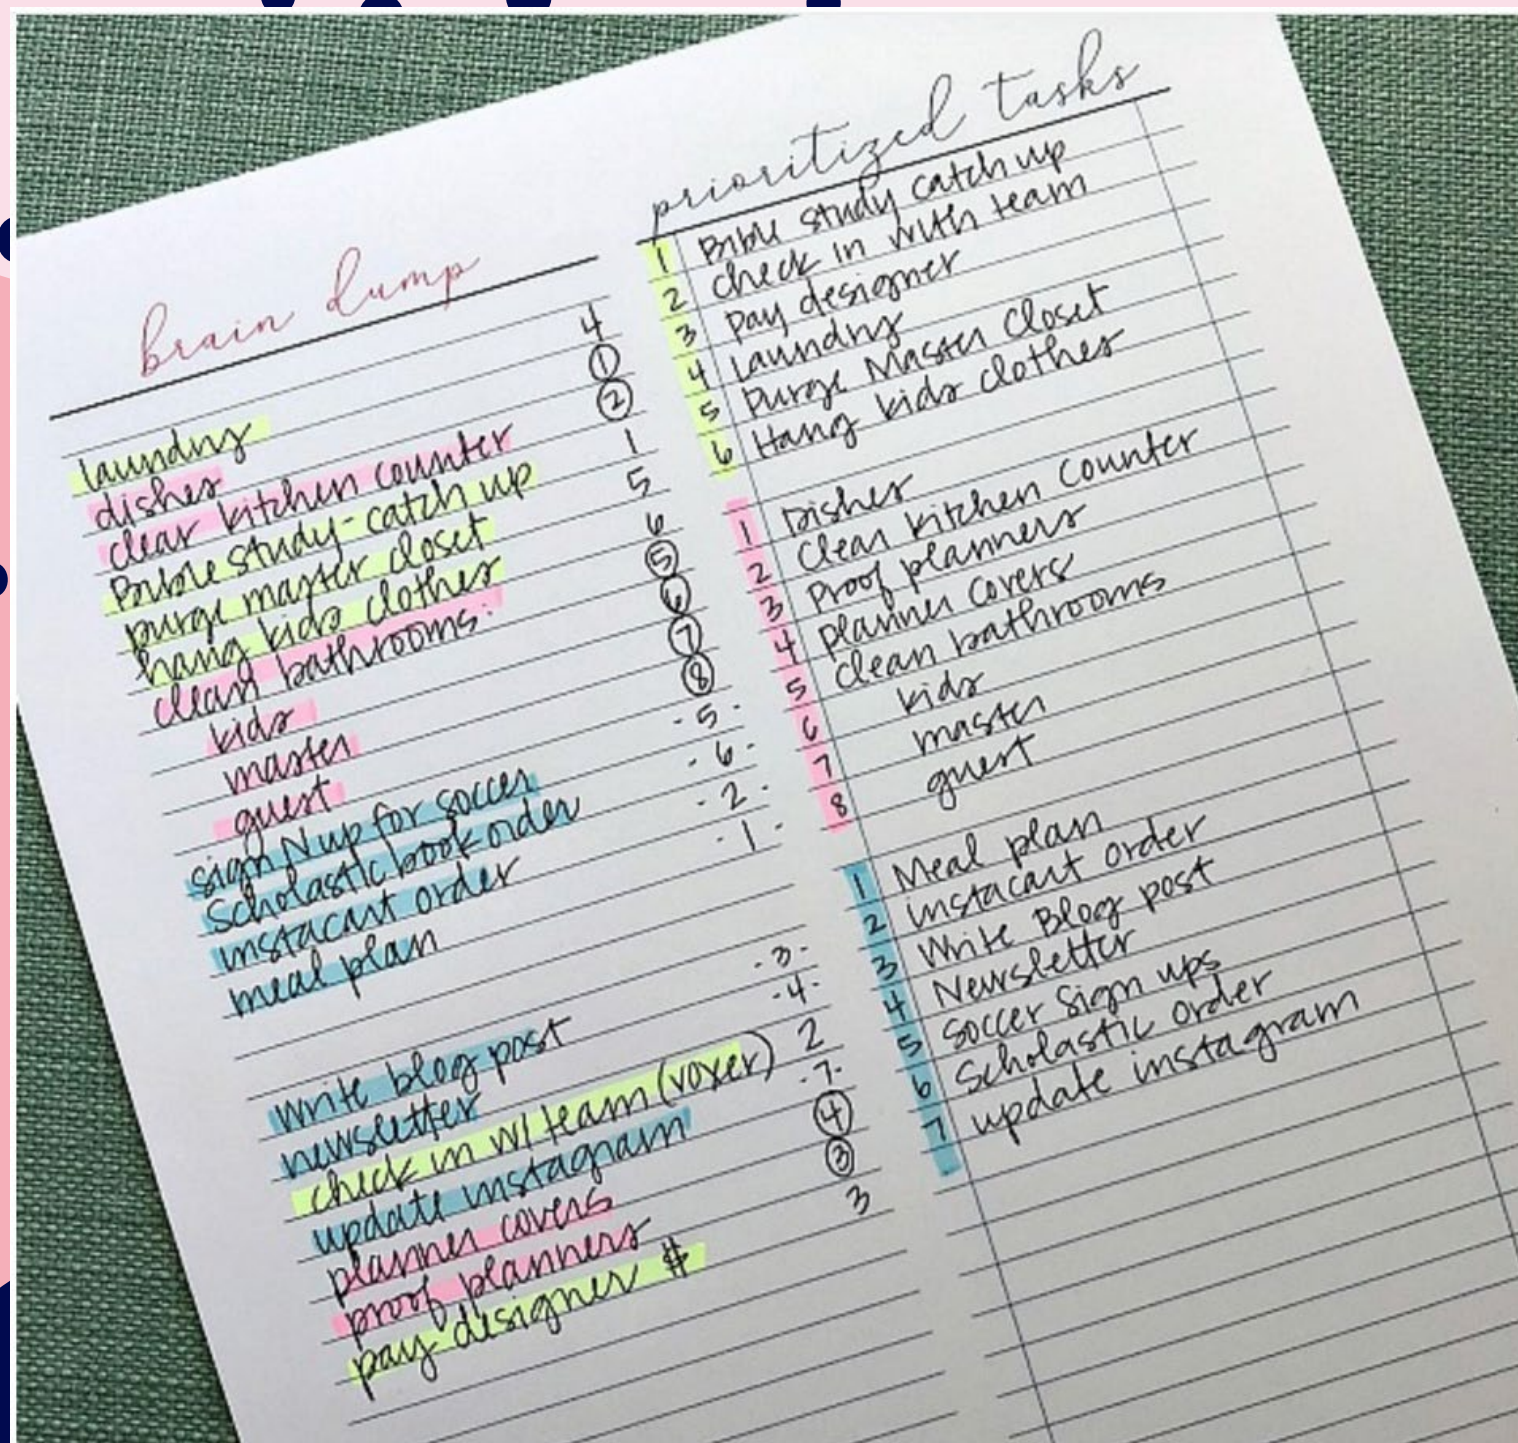 brain dump
laundry 4
dishes ①
clear kitchen counter ②
Bible study - catch up 1
purge master closet 5
hang kids clothes 6
clean bathrooms: ⑤
kids ⑥
master ⑦
guest ⑧
sign up for soccer - 5 -
Scholastic book order - 6 -
instacart order - 2 -
meal plan - 1 -
write blog post - 3 -
newsletter - 4 -
check in w/ team (voxer) 2
update instagram - 7 -
planner covers ④
proof planners ③
pay designer $ 3
prioritized tasks
1 Bible study catch up
2 check in with team
3 pay designer
4 laundry
5 purge Master Closet
6 Hang kids clothes
1 Dishes
2 Clear kitchen Counter
3 Proof planners
4 planner covers
5 clean bathrooms
6 kids
7 master
8 guest
1 Meal plan
2 instacart order
3 Write Blog post
4 Newsletter
5 Soccer Sign ups
6 Scholastic order
7 update instagram